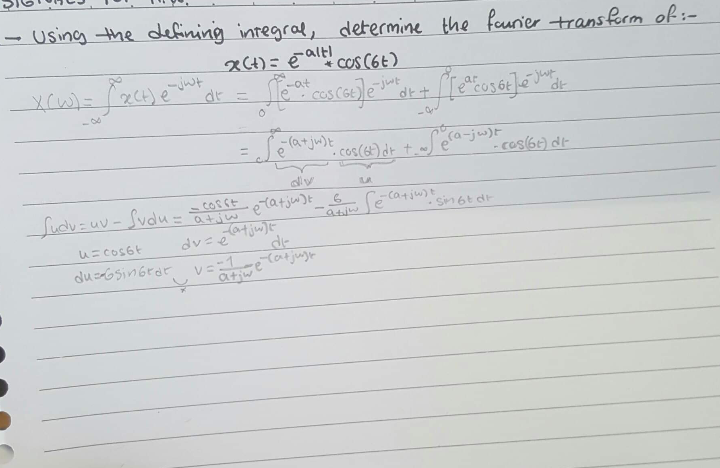 → Using the defining integral, determine the fourier transform of :-
x(t) = e^-a|t| * cos(6t)
X(w) = ∫_-∞^∞ x(t) e^-jwt dt = ∫_0^∞ [e^-at · cos(6t)] e^-jwt dt + ∫_-∞^0 [e^at cos6t] e^-jwt dt
= ∫_0^∞ e^-(a+jw)t · cos(6t) dt + ∫_-∞^0 e^(a-jw)t · cos(6t) dt
dv u
∫udv = uv - ∫vdu = -cos6t/a+jw e^-(a+jw)t - 6/a+jw ∫e^-(a+jw)t · sin6t dt
u = cos6t dv = e^-(a+jw)t dt
du = -6sin6t dt v = -1/a+jw e^-(a+jw)t